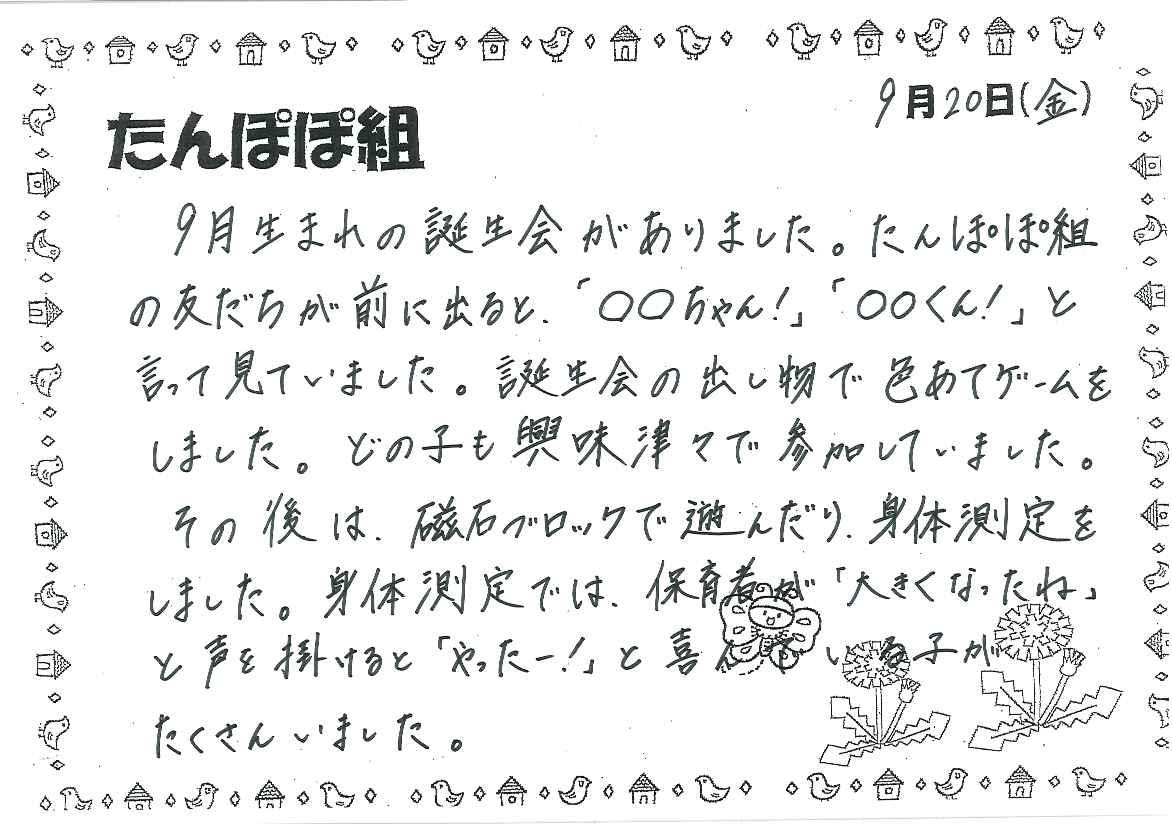 9月20日(金)
たんぽぽ組
9月生まれの誕生会がありました。たんぽぽ組
の友だちが前に出ると、「〇〇ちゃん!」「〇〇くん!」と
言って見ていました。誕生会の出し物で色あてゲームを
しました。どの子も興味津々で参加していました。
その後は、磁石ブロックで遊んだり、身体測定を
しました。身体測定では、保育者が「大きくなったね」
と声を掛けると「やったー!」と喜んでいる子が
たくさんいました。